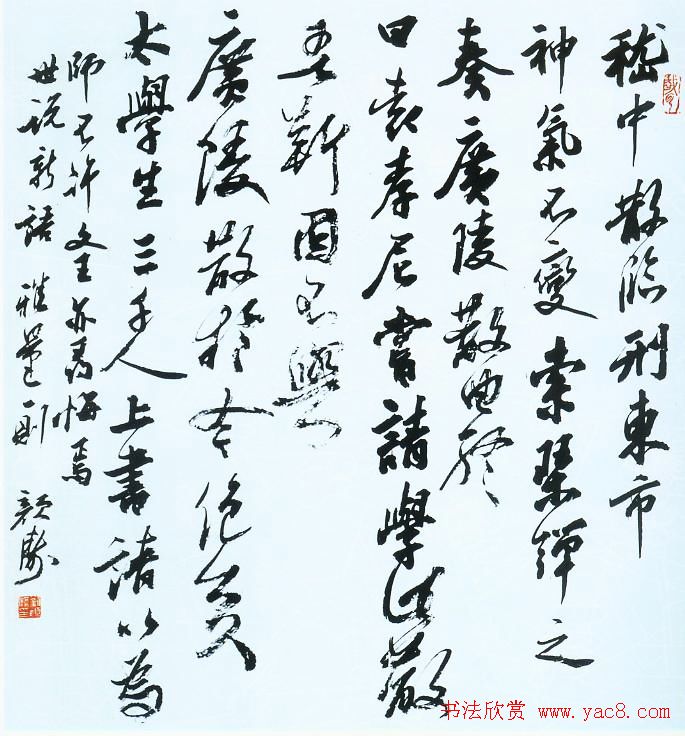 嵇中散臨刑東市
神氣不變索琴彈之
奏廣陵散曲終
曰袁孝尼嘗請學此散
吾靳固不與
廣陵散於今絕矣
太學生三千人上書請以為
師不許文王亦尋悔焉
世說新語雅量一則
书法欣赏 www.yac8.com